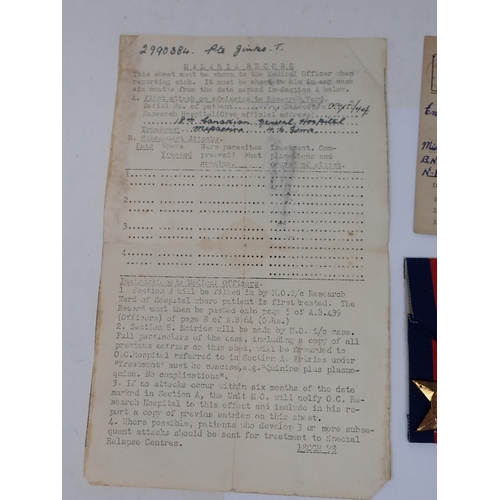 2990384. Pte Jinks. T.
MALARIA RECORD
This sheet must be shown to the Medical Officer when
reporting sick. It must be shown to him in any case
six months from the date marked in Section A below.
A. First attack on admission to Research Ward.
Serial No. of patient
Research Hospital (Give official address)
General Hospital
Treatment. Mepacrine
B. Subsequent Attacks.
Date Where Were parasites Treatment. Com-
present? What plications and
1
2
3
4
Instructions to Medical Officers.
1 Section A will be filled in by M.O. i/c Research
Ward of Hospital where patient is first treated. The
Record must then be pasted onto page 5 of A.B.439
(Officers) of page 8 of A.B.64 (O.Rs.)
2. Section B. Entries will be made by M.O. i/c case.
Full particulars of the case, including a copy of all
previous entries on this sheet, will be forwarded to
O.C. Hospital referred to in Section A. Entries under
"Treatment" must be concise, e.g. "Quinine plus plasmo-
quine. No complications".
3. If no attacks occur within six months of the date
marked in Section A, the Unit M.O. will notify O.C. Re-
search Hospital to this effect and include in his re-
port a copy of previous entries on this sheet.
4. Where possible, patients who develop 3 or more subse-
quent attacks should be sent for treatment to Special
Relapse Centres.